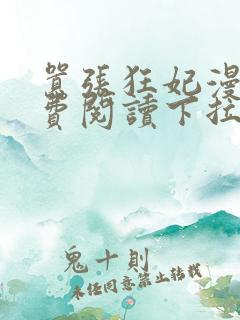 囂張狂妃漫
費閱讀下拉
鬼十則
未經同意禁止轉載